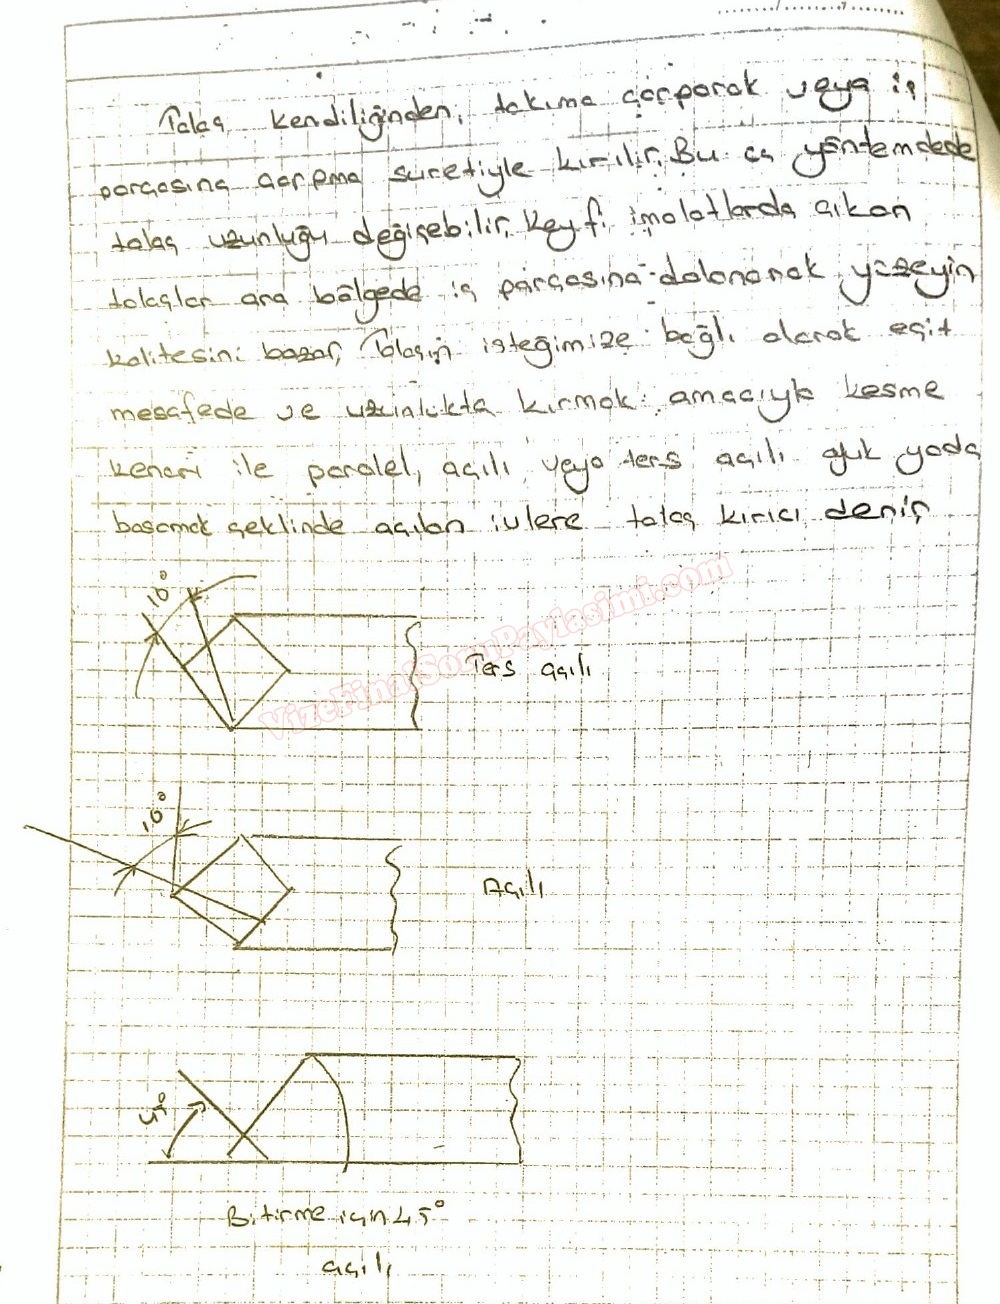 Talaş kendiliğinden, takıma çarparak veya iş
parçasına çarpma suretiyle kırılır. Bu üç yöntemdede
talaş uzunluğu değişebilir. Keyfi imalatlarda çıkan
talaşlar ara bölgede iş parçasına dolanarak yüzeyin
kalitesini bozar, Talaşın isteğimize bağlı olarak eşit
mesafede ve uzunlukta kırmak amacıyla kesme
kenarı ile paralel, açılı veya ters açılı oluk yada
basamak şeklinde açılan ivlere talaş kırıcı denir
10°
Ters açılı
VizeFinalSoruPaylasimi.com
10°
Açılı
45°
Bitirme için 45°
açılı